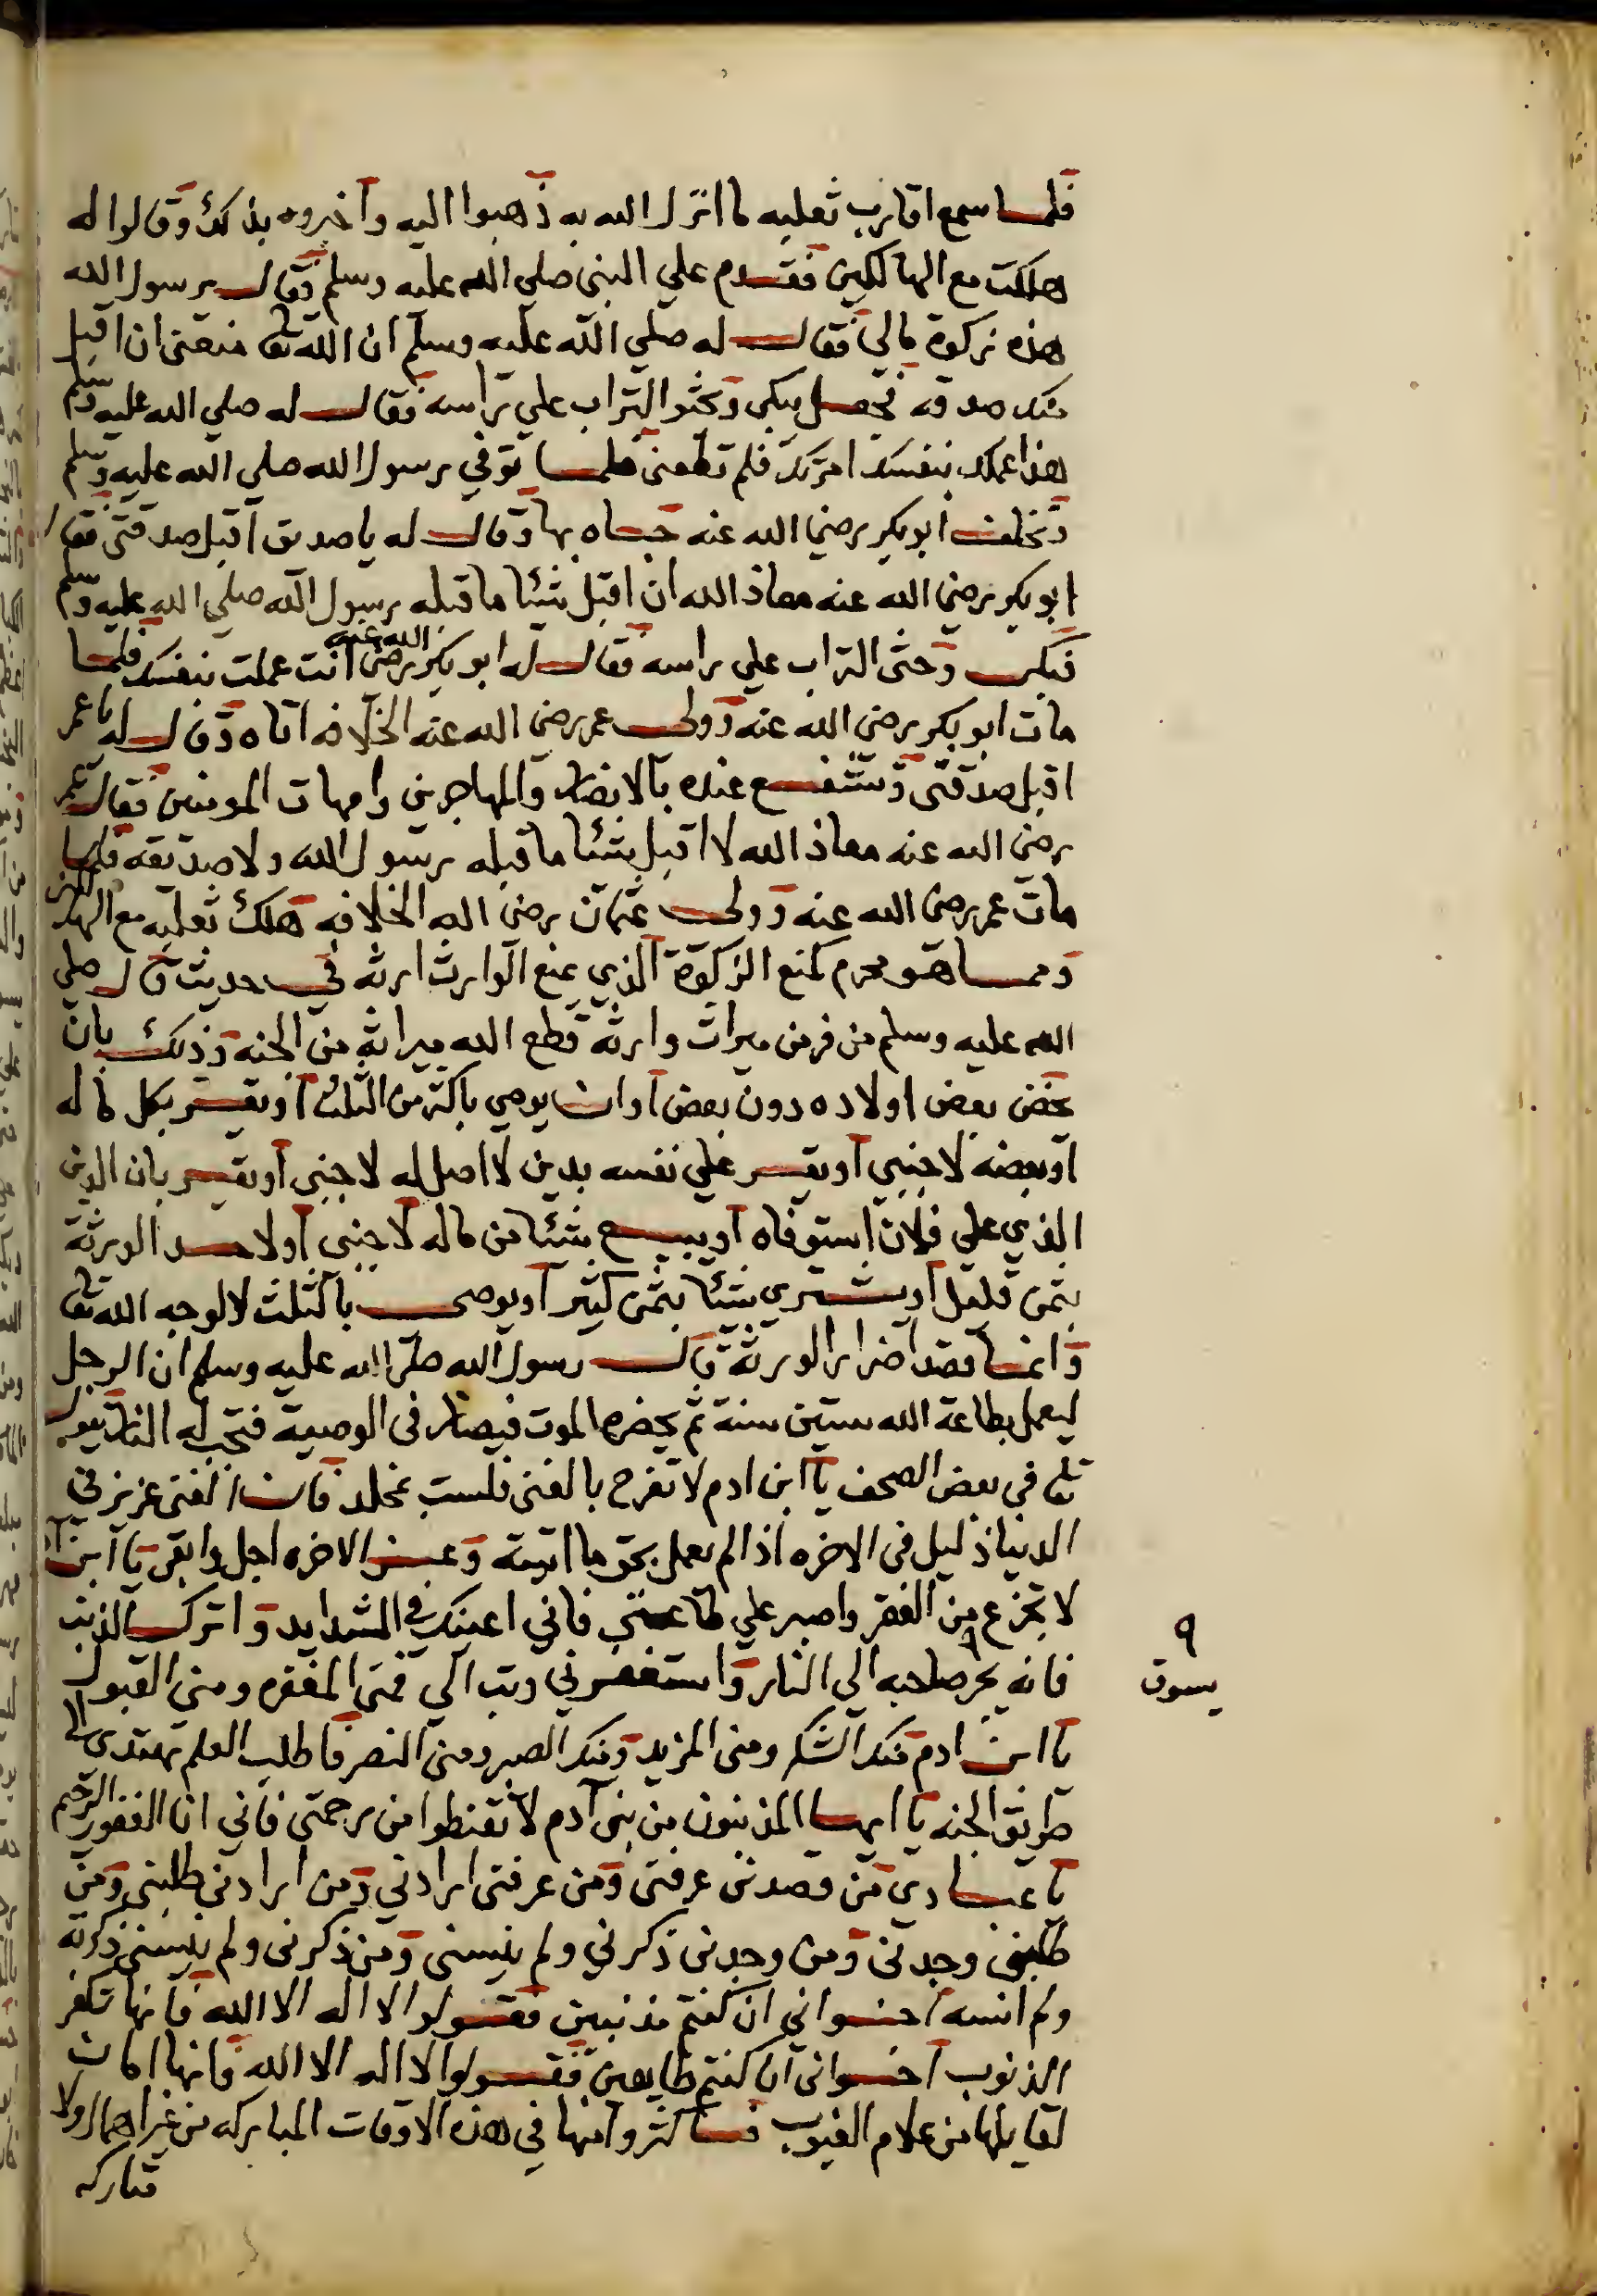 فلما سمع اقارب ثعلبه ما انزل الله به ذهبوا اليه واخبروه بذلك وقالوا له
هلكت مع الهالكين فقدم علي النبى صلي الله عليه وسلم وقال يرسول الله
هذه زكوة مالي فقال له صلي الله عليه وسلم ان الله تعا منعنى ان اقبل
منك صدقه فجعل يبكى ويحثو التراب علي راسه فقال له صلي الله عليه وسلم
هذا عملك بنفسك امرتك فلم تطعنى فلما توفي رسول الله صلي الله عليه وسلم
وتخلف ابو بكر رضي الله عنه جاه بها وقال له يا صديق اقبل صدقتى فقال
ابو بكر رضي الله عنه معاذ الله ان اقبل شيئا ما قبله رسول الله صلي الله عليه وسلم
فبكى وحثى التراب علي راسه فقال له ابو بكر رضى الله عنه انت عملت بنفسك فلما
مات ابو بكر رضى الله عنه وولى عمر رضى الله عنه الخلافه اتاه وقال له يا عمر
اقبل صدقتى وتشفع عنده بالانصار والمهاجرين وامهات المومنين فقال عمر
رضى الله عنه معاذ الله لا اقبل شيئا ما قبله رسول الله ولا صديقه فلما
مات عمر رضى الله عنه وولى عثمان رضى الله الخلافه هلك ثعلبه مع الهالكين
ومما هو محرم كمنع الزكوة الذي يمنع الوارث ارثه في حديث قال صلي
الله عليه وسلم من فر من ميراث وارثه قطع الله ميراثه من الجنه وذلك بان
يخص بعض اولاده دون بعض اوان يوصي باكثر من الثلث اويقر بكل ماله
اوبعضه لاجنبى اويقر علي نفسه بدين لا اصل له لاجنبى اويقر بان الدين
الذي علي فلان استوفاه اويبيع شيئا من ماله لاجنبى اولاحد الورثة
بثمن قليل اويشتري شيئا بثمن كثير اويوصى بالثلث لا لوجه الله تعا
وانما قصد اضرار الورثة قال رسول الله صلي الله عليه وسلم ان الرجل
ليعمل بطاعة الله ستين سنة ثم يحضره الموت فيضار فى الوصية فتجب له النار يقول
تعا فى بعض الصحف يا ابن ادم لا تفرح بالغنى فلست بمخلد فان الغنى عزيز في
الدنيا ذليل فى الاخره اذا لم يعمل بحق ما اتيته وعز الاخره اجل وابقى يا ابن ادم
لا تجزع من الفقر واصبر علي طاعتى فاني اعينك في الشدايد واترك الذنب
فانه يجر صاحبه الي النار واستغفرني وتب الي فمنى المغفره ومنى القبول
٩
يسوق
يا ابن ادم منك الشكر ومنى المزيد ومنك الصبر ومنى النصر فاطلب العلم تهتدى الى
طريق الجنه يا ايها المذنبون من بنى آدم لا تقنطوا من رحمتى فاني انا الغفور الرحيم
يا عبادى من قصدنى عرفنى ومن عرفنى ارادني ومن ارادنى طلبنى ومن
طلبنى وجدنى ومن وجدنى ذكرني ولم ينسنى ومن ذكرنى ولم ينسنى ذكرته
ولم انسه اخواني ان كنتم مذنبين فقولوا لا اله الا الله فانها تكفر
الذنوب اخوانى ان كنتم طايعين فقولوا لا اله الا الله فانها امان
لقايلها من علام الغيوب فاكثروا منها في هذه الاوقات المباركه من غير اهمال ولا
متاركه